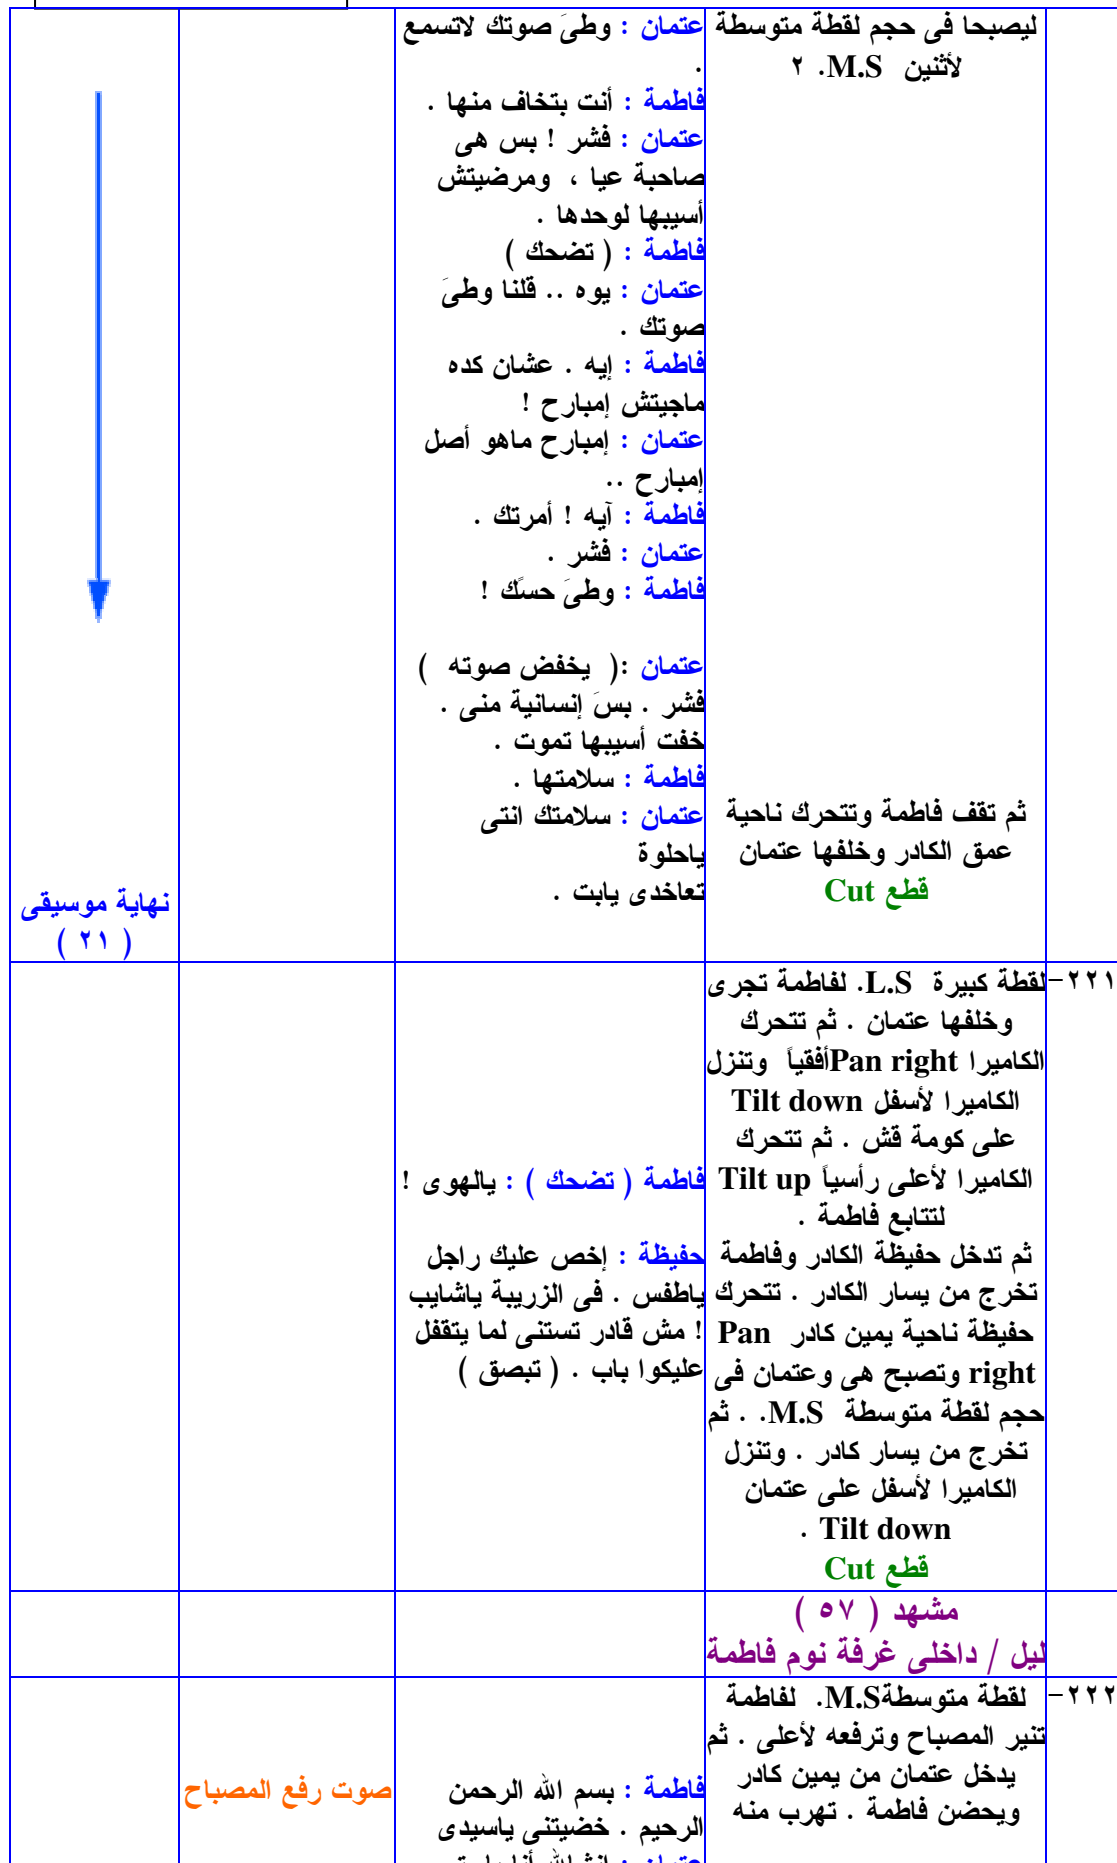 ليصبحا فى حجم لقطة متوسطة
لأثنين M.S. ٢
ثم تقف فاطمة وتتحرك ناحية
عمق الكادر وخلفها عتمان
قطع Cut
عتمان : وطىَ صوتك لاتسمع
.
فاطمة : أنت بتخاف منها .
عتمان : فشر ! بس هى
صاحبة عيا ، ومرضيتش
أسيبها لوحدها .
فاطمة : ( تضحك )
عتمان : يوه .. قلنا وطىَ
صوتك .
فاطمة : إيه . عشان كده
ماجيتش إمبارح !
عتمان : إمبارح ماهو أصل
إمبارح ..
فاطمة : آيه ! أمرتك .
عتمان : فشر .
فاطمة : وطىَ حسَك !
عتمان :( يخفض صوته )
فشر . بسَ إنسانية منى .
خفت أسيبها تموت .
فاطمة : سلامتها .
عتمان : سلامتك انتى
ياحلوة
تعاخدى يابت .
نهاية موسيقى
( ٢١ )
٢٢١-
لقطة كبيرة L.S. لفاطمة تجرى
وخلفها عتمان . ثم تتحرك
الكاميرا Pan right أفقياً وتنزل
الكاميرا لأسفل Tilt down
على كومة قش . ثم تتحرك
الكاميرا لأعلى رأسياً Tilt up
لتتابع فاطمة .
ثم تدخل حفيظة الكادر وفاطمة
تخرج من يسار الكادر . تتحرك
حفيظة ناحية يمين كادر Pan
right وتصبح هى وعتمان فى
حجم لقطة متوسطة M.S. . ثم
تخرج من يسار كادر . وتنزل
الكاميرا لأسفل على عتمان
Tilt down .
قطع Cut
فاطمة ( تضحك ) : يالهوى !
حفيظة : إخص عليك راجل
ياطفس . فى الزريبة ياشايب
! مش قادر تستنى لما يتقفل
عليكوا باب . ( تبصق )
مشهد ( ٥٧ )
ليل / داخلى غرفة نوم فاطمة
٢٢٢-
لقطة متوسطة M.S. لفاطمة
تنير المصباح وترفعه لأعلى . ثم
يدخل عتمان من يمين كادر
ويحضن فاطمة . تهرب منه
فاطمة : بسم الله الرحمن
الرحيم . خضيتنى ياسيدى
صوت رفع المصباح